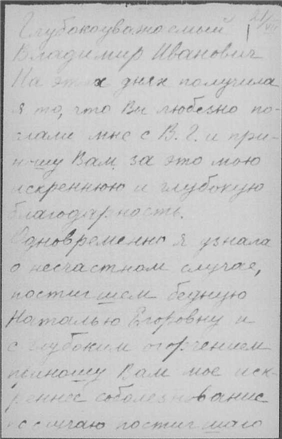 Глубокоуважаемый
Владимир Иванович
На этих днях получила
я то, что Вы любезно по-
слали мне с В. Г. и при-
ношу Вам за это мою
искреннюю и глубокую
благодарность.
Одновременно я узнала
о несчастном случае,
постигшем бедную
Наталью Егоровну и
с глубоким огорчением
приношу Вам мое иск-
реннее соболезнование
постигшаго